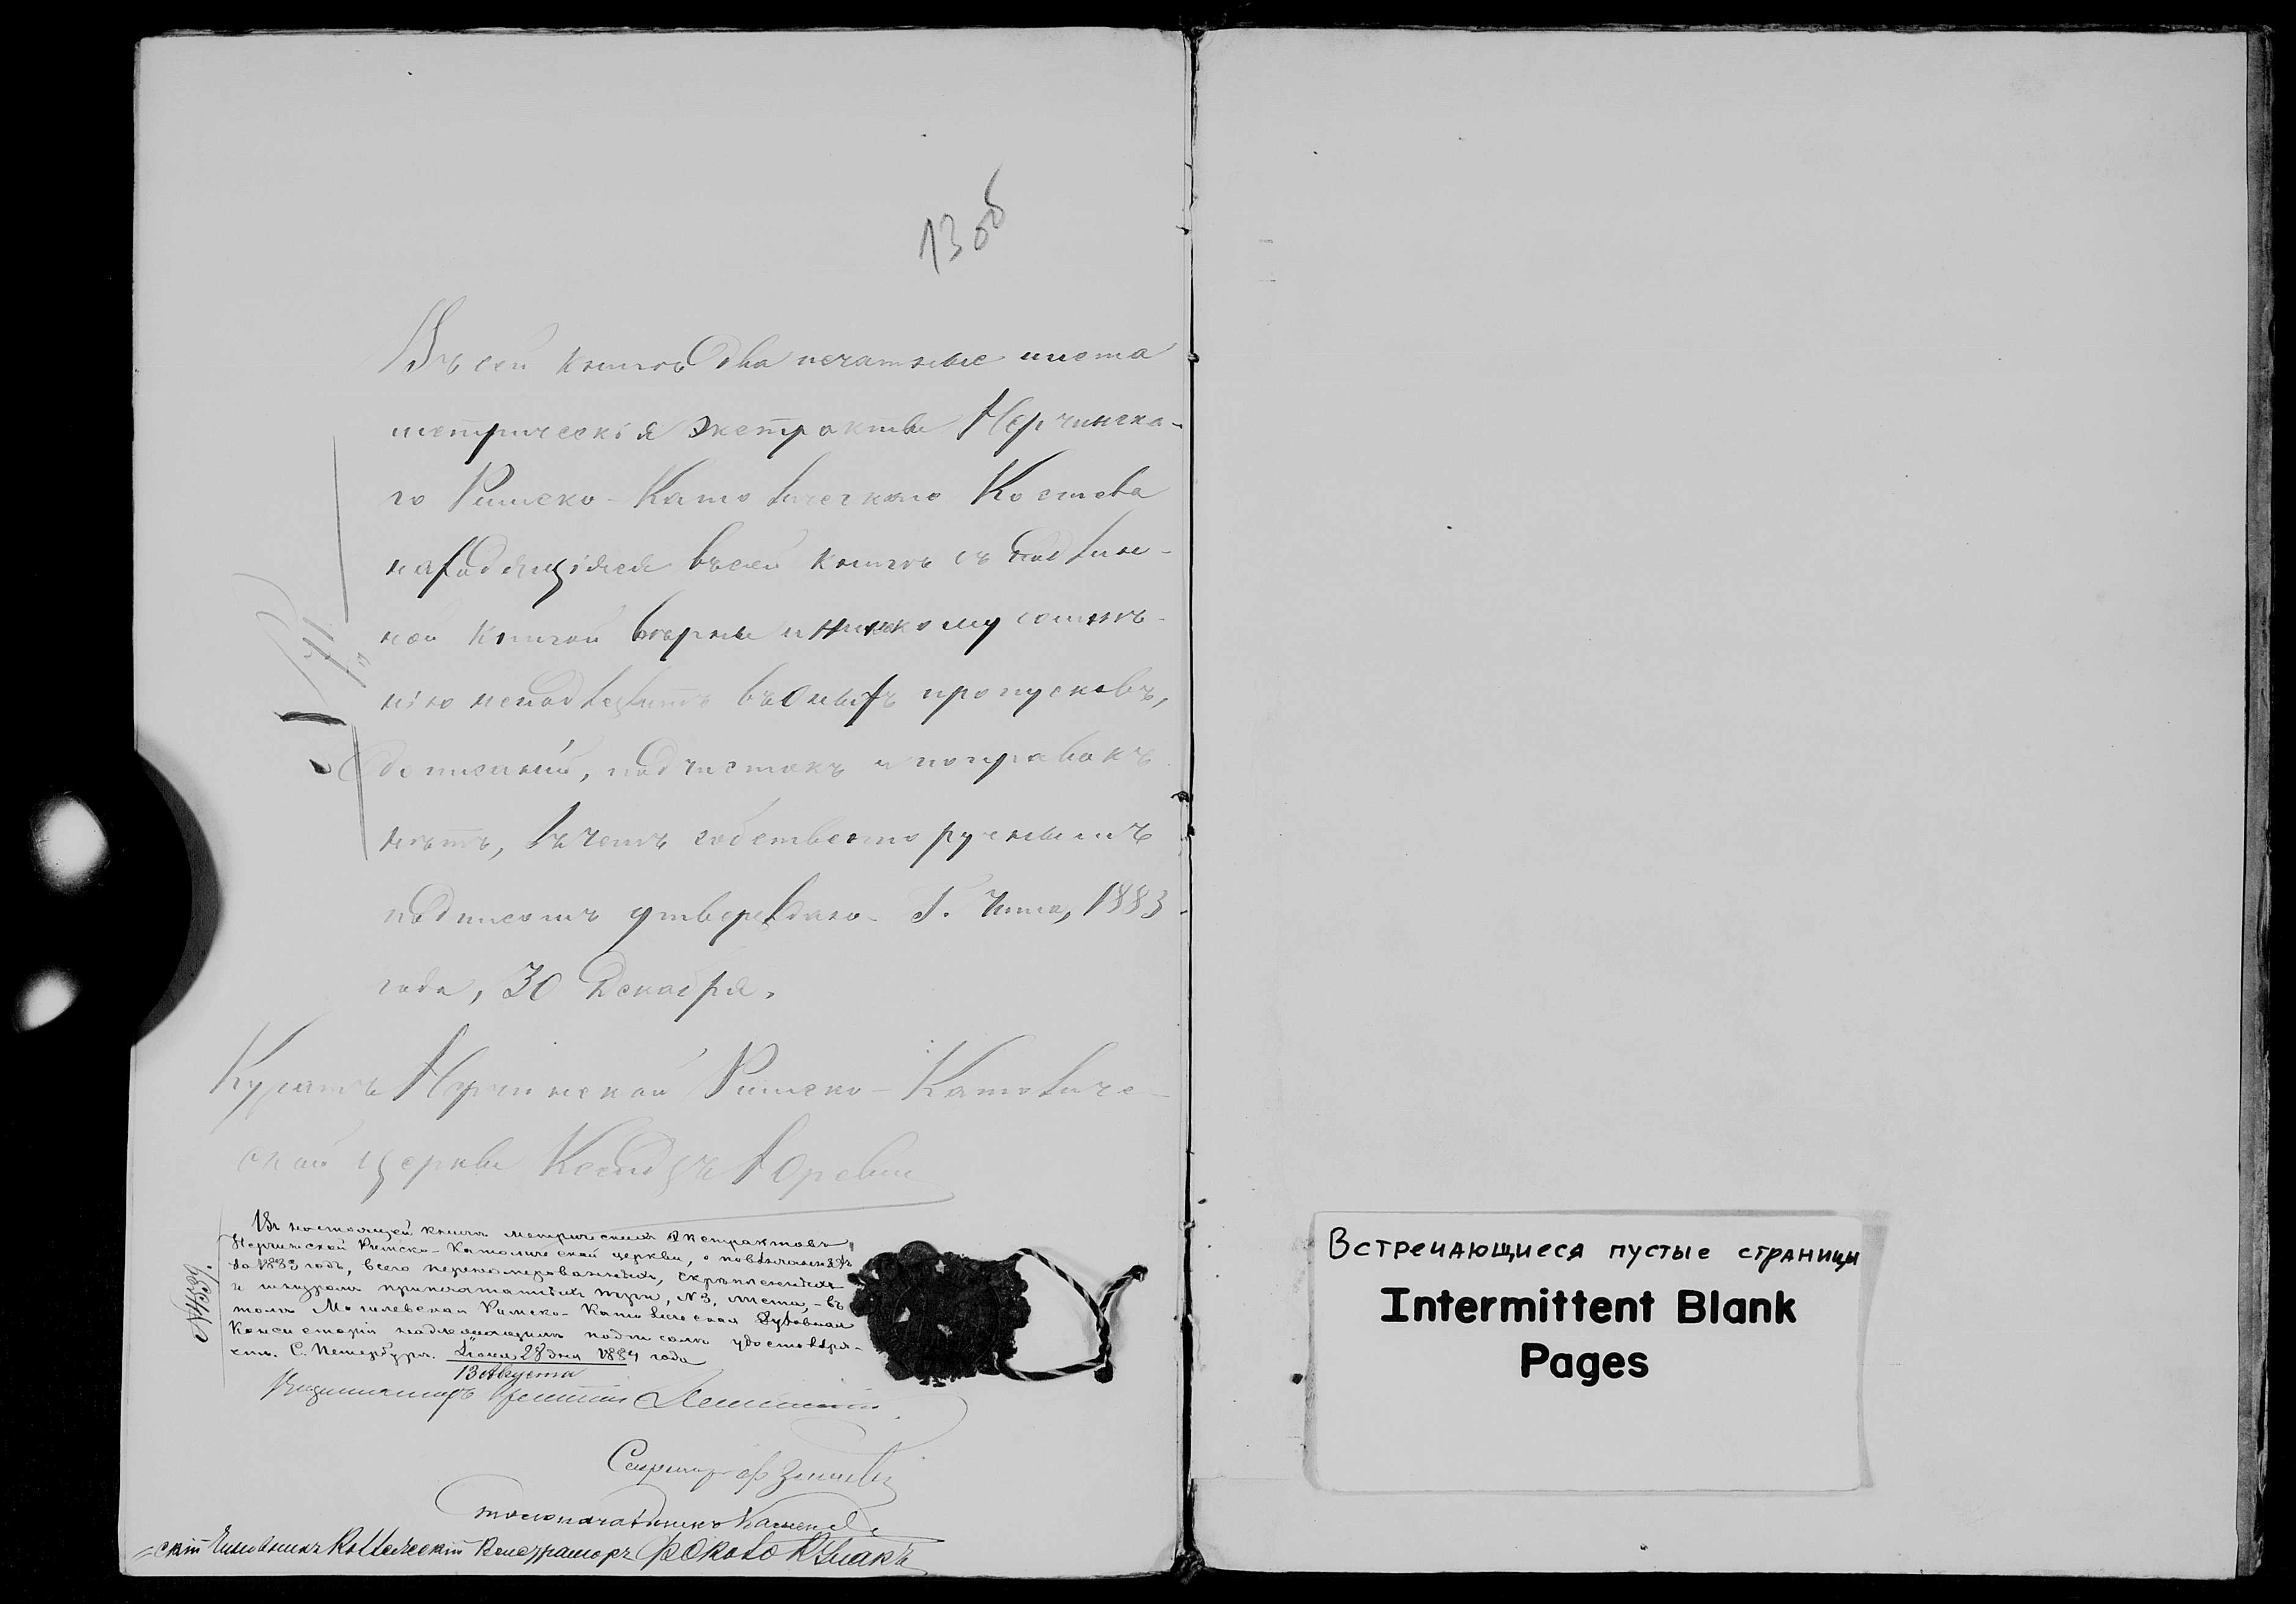 13 об
Въ сей книгѣ два печатные листа
метрическія экстракты Нерчинска-
го Римско-Католическаго Костела
находящіяся въ сей книгѣ съ подлин-
ной книгой вѣрны и никому сомнѣ-
нію неподлежитъ въ оныхъ пропусковъ,
дописаній, подчистокъ и поправокъ
нѣтъ, въ чемъ собственноручнымъ
подписомъ утверждаю. Г. Чита, 1883
года, 30 Декабря.
Куратъ Нерчинской Римско-Католиче-
ской церкви Ксендзъ
Въ настоящей книгѣ метрическихъ экстрактовъ
Нерчинской Римско-Католической церкви, о повѣнчанныхъ
за 1883 годъ, всего перенумерованныхъ, скрѣпленныхъ
и шнуромъ припечатанныхъ три, N 3, листа, - въ
томъ Могилевская Римско-Католическая Духовная
Консисторія надлежащимъ подписомъ удостовѣря-
етъ. С. Петербургъ. Іюля 28 дня 1884 года
13 Августа
N 4539.
Секретарь
Столоначальникъ
Коллежскій Регистраторъ
Встречающиеся пустые страницы
Intermittent Blank
Pages